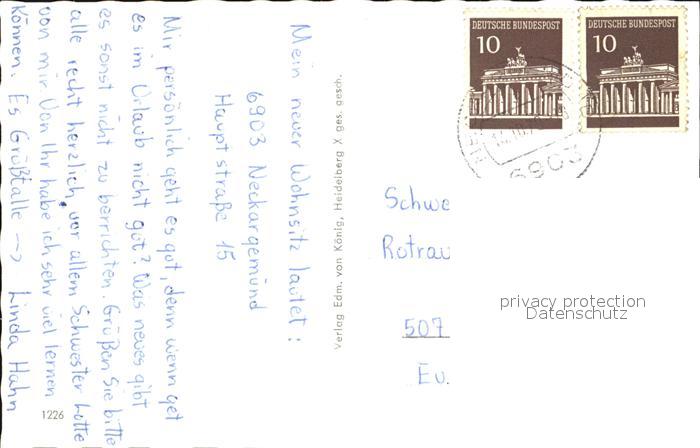 Mein neuer Wohnsitz lautet:
6903 Neckargemünd
Hauptstraße 15
Mir persönlich geht es gut, denn wenn get
es im Urlaub nicht gut? Was neues gibt
es sonst nicht zu berrichten. Grüßen Sie bitte
alle recht herzlich, vor allem Schwester Lotte
von mir. Von Ihr habe ich sehr viel lernen
können. Es Grüßt alle → Linda Hahn
1226
Verlag Edm. von König, Heidelberg X ges. gesch.
DEUTSCHE BUNDESPOST
10
DEUTSCHE BUNDESPOST
10
6903
Schwe
Rotrau
507
Ev.
privacy protection
Datenschutz